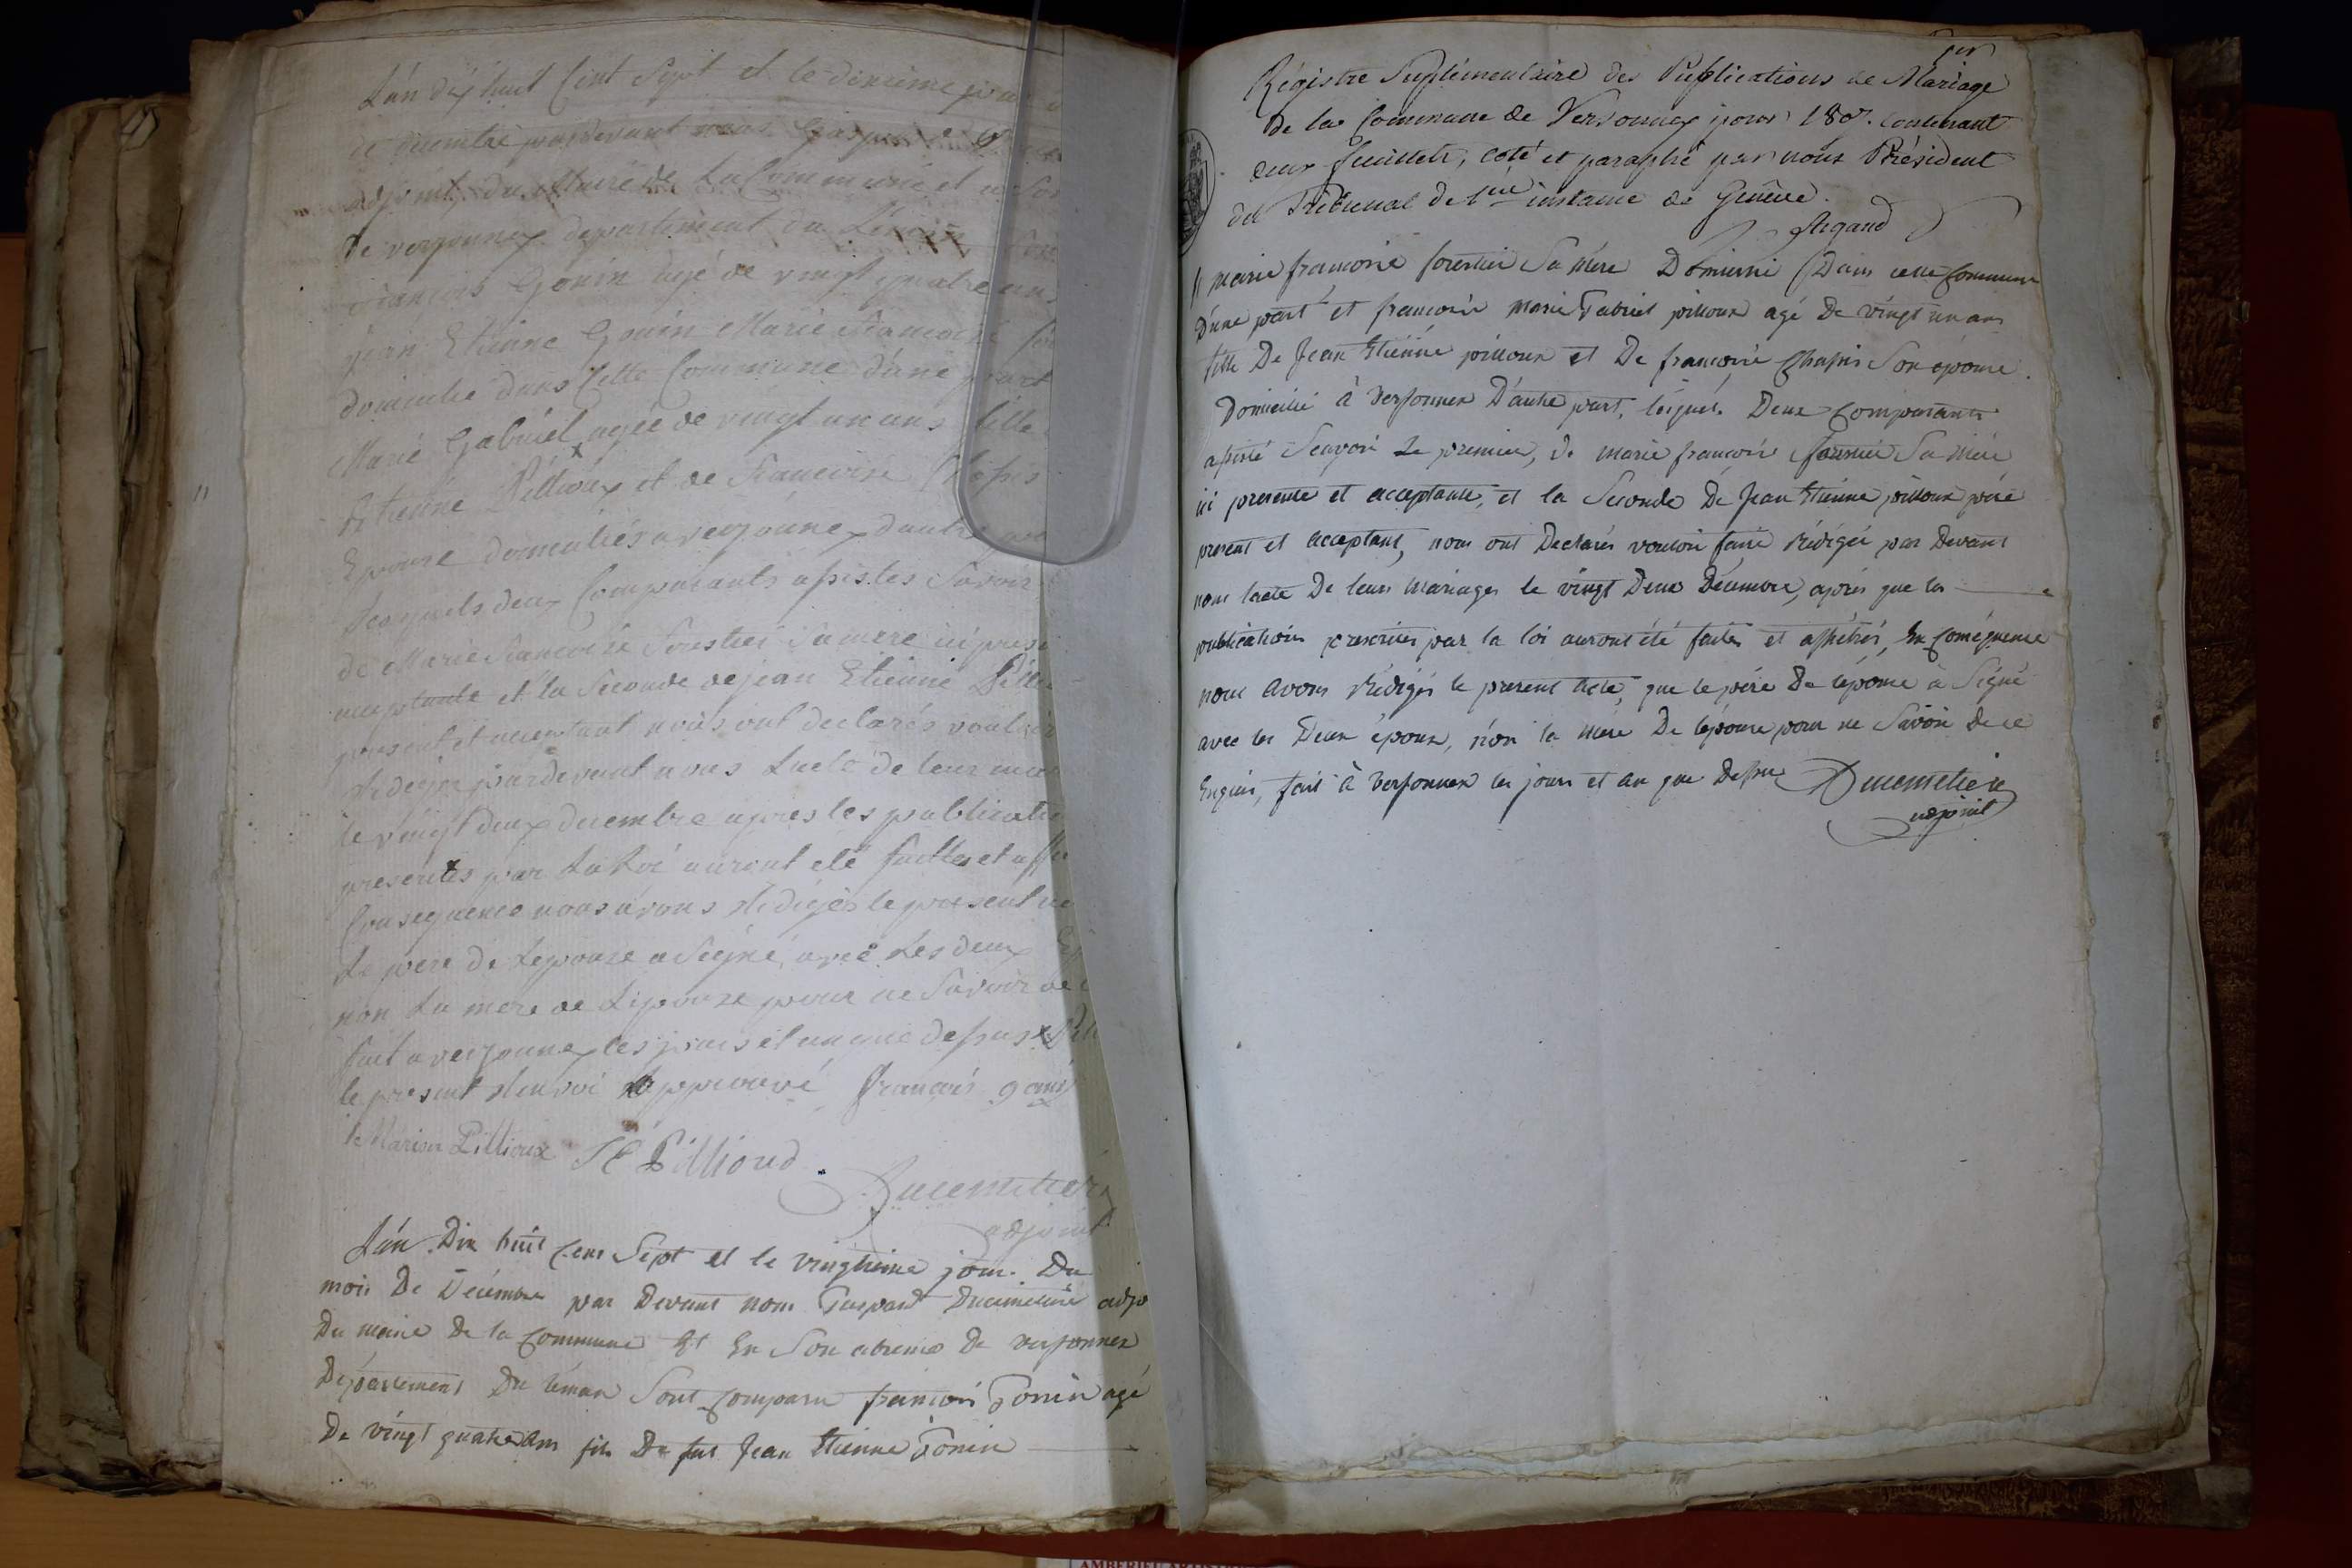 L'an dix huit Cent Sept et le dixieme jour
de decembre pardevant nous Gaspard
adjoint du Maire de La Commune et
de versonnex departement du Léman
françois Gonin agé de vingt quatre ans
jean Etienne Gonin Marie francoise
domicilié dans Cette Commune d'une part
Marie Gabriel agée de vingt un ans fille
Etienne Pillioux et de francoise Chapis
Epouse domiciliés a versonnex d'autre
Lesquels deux Comparants assistes Savoir
de Marie francoise Forestier Sa mere ici pres
acceptante et la Seconde de jean Etienne
present et acceptant nous ont declarés vouloir
Rediger pardevant nous Lacte de leur
le vingt deux decembre apres les publicatio
prescrites par La Loi auront eté faittes et aff
Consequence nous avons Rédigés le present
Le pere de Lepouse a Signé avec Les deux
non La mere de Lepouse pour ne Savoir de
fait a versonnex les jours et an que dessus
le present Renvoi approuvé françois gonin
Marion Pillioux J E Pillioud
Ducimetière
adjoint
L'an Dix huit Cens Sept et le vingtieme jour Du
mois De Décembre par Devant nous Gaspard Ducimetiere adjo
Du maire De la Commune Et En Son absence De versonnex
Département Du Léman Sont Comparu francois Gonin agé
De vingt quatre ans fils De fut Jean Etienne Gonin
Régistre Suplémentaire des Publications de Mariage
de la Commune de Versonnex pour 1807. Contenant
deux feuillets, coté et paraphé par nous Président
du Tribunal de 1ere instance de Genève.
Argand
marie francoise forestier Sa mère Domicilié Dans cette Commune
D'une part et francoise marie Gabriel pilloux agé De vingt un ans
fille De Jean Etienne pilloux et De francoise Chapis Son épouse
Domicilié à versonnex D'autre part, lesquels Deux Comparants
assisté Scavoir Le premier, de marie francoise forestier Sa mère
ici presente et acceptante, et la Seconde De Jean Etienne pilloux père
present et acceptant, nous ont Declarés vouloir faire rédigée par Devant
nous lacte De leurs mariages le vingt Deux Décembre, après que les
publications prescrites par la loi auront été faites et affichés, En Conséquence
nous avons rédigés le present acte, que le père De lépouse a Signé
avec les Deux époux, non la mère De lépouse pour ne Savoir De ce
Enquis, fait à versonnex les jours et an que Dessus Ducimetiere
adjoint